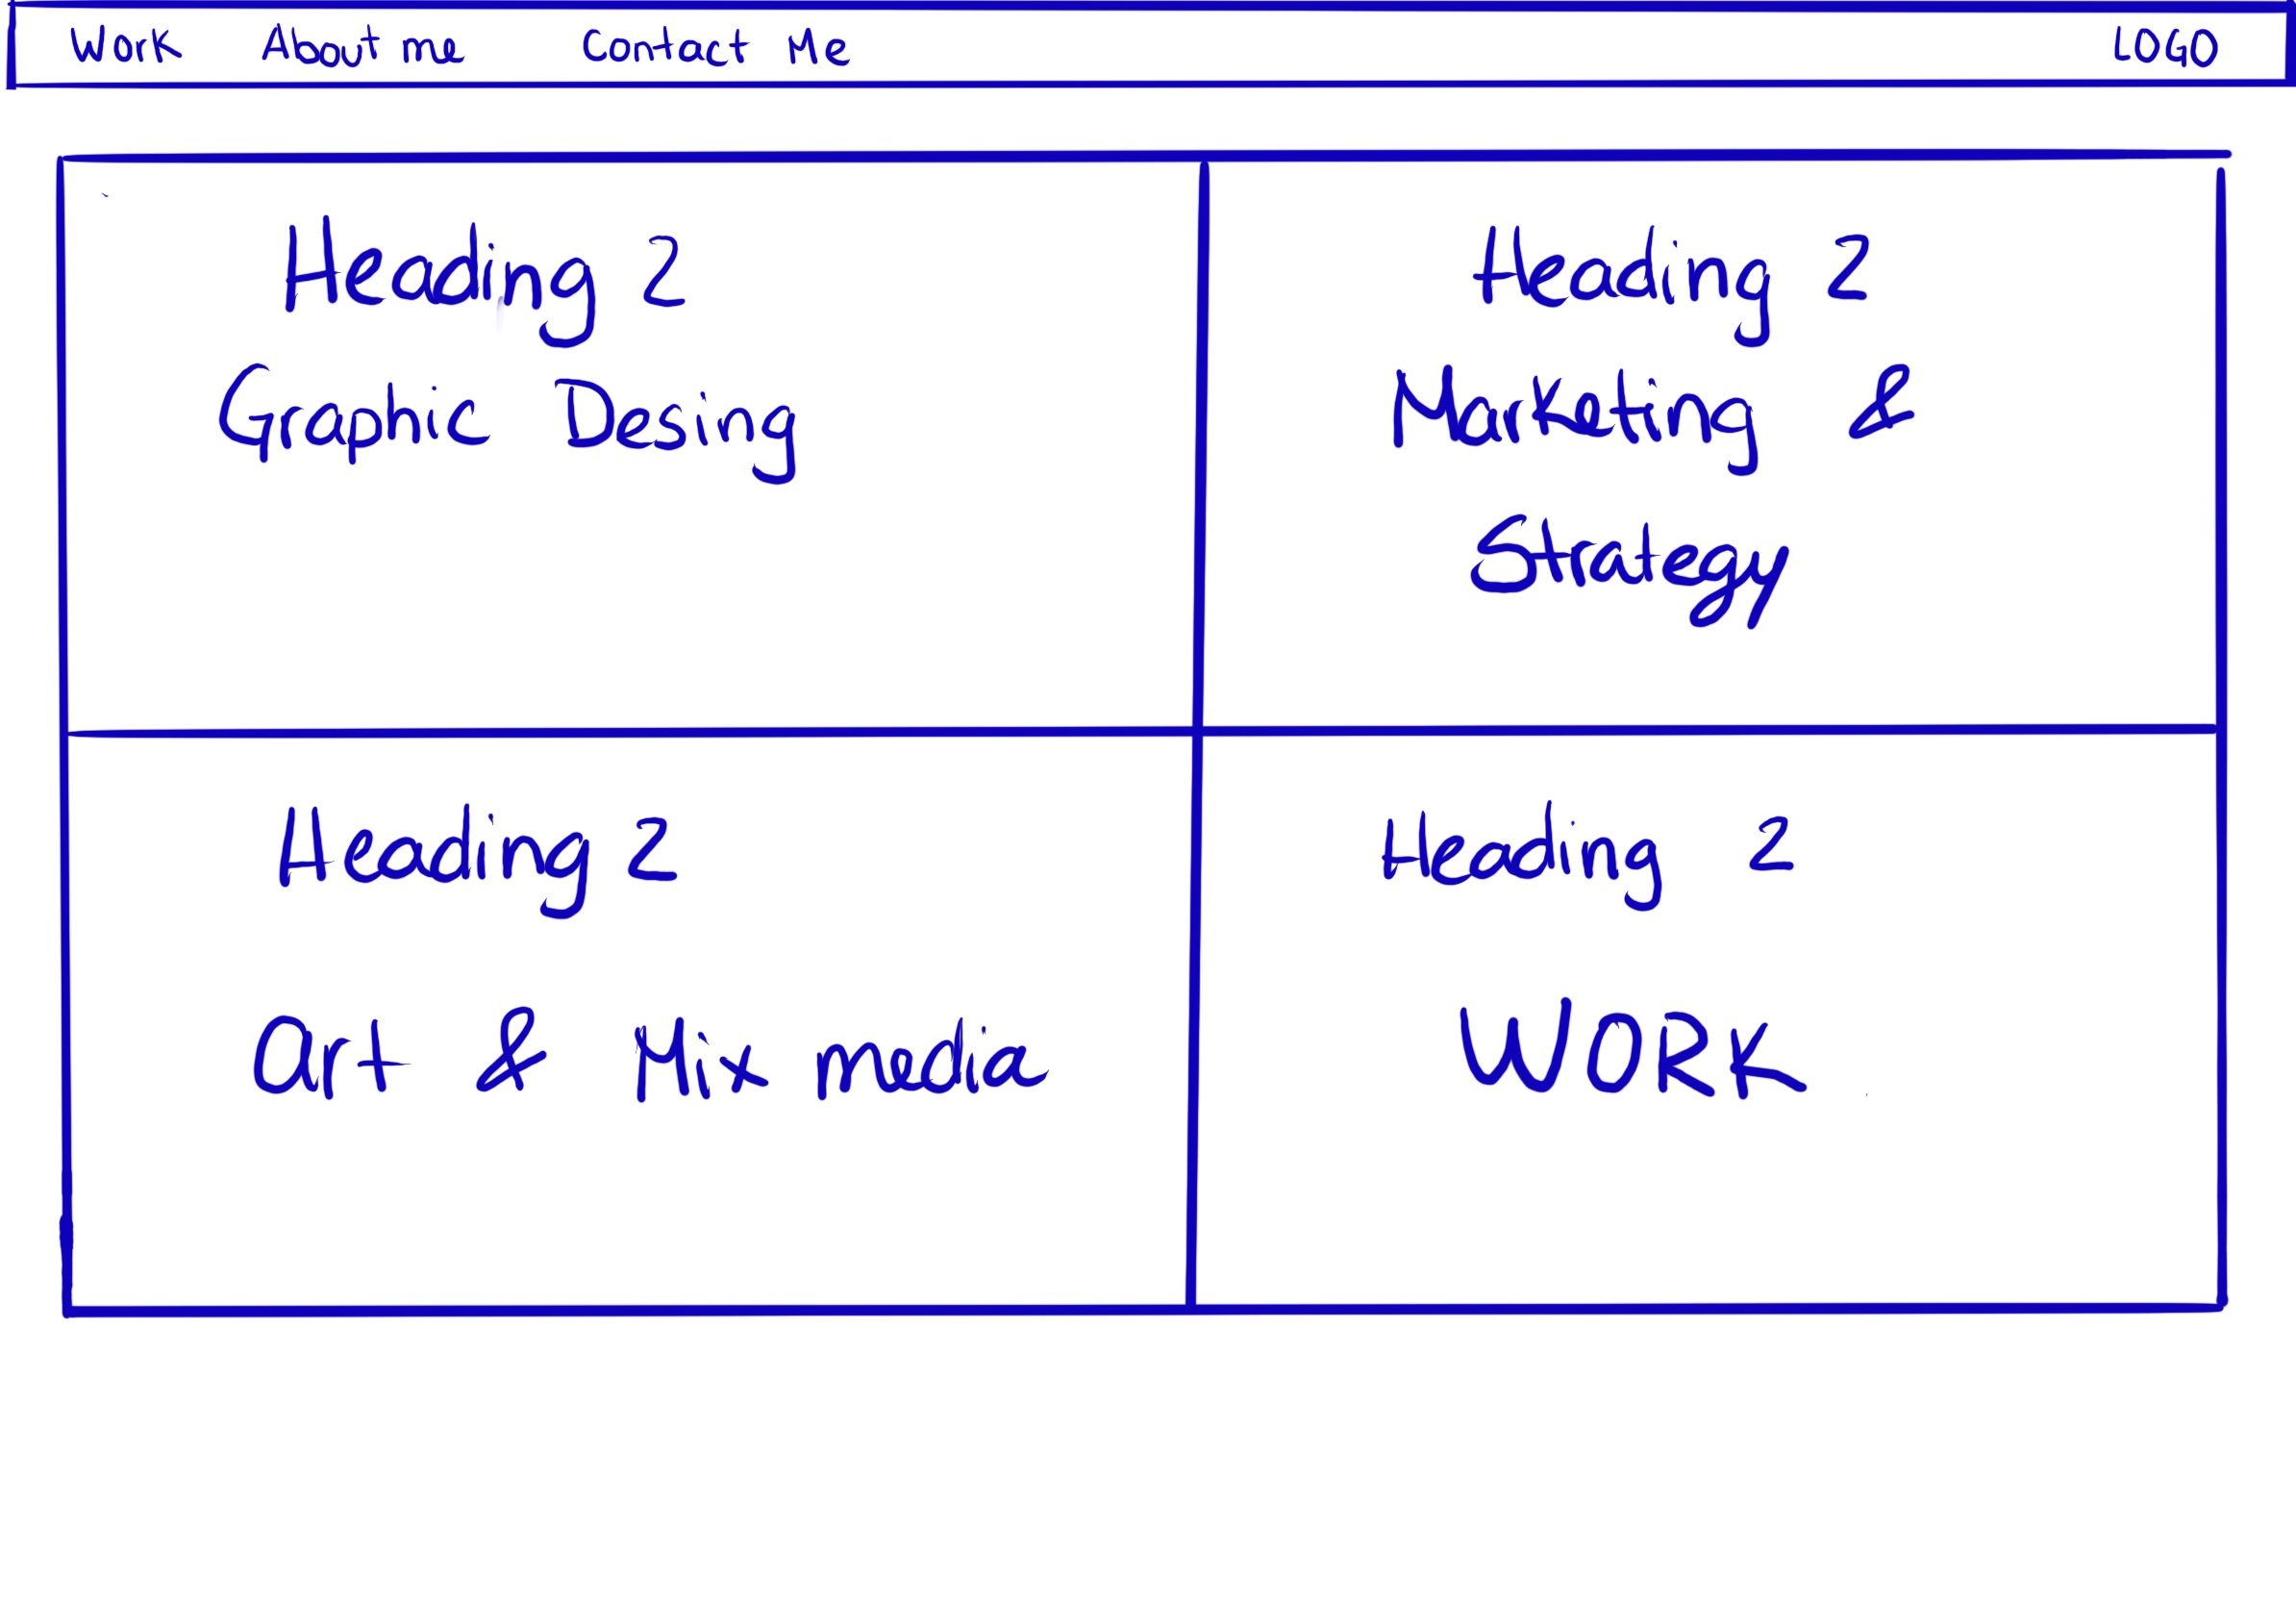 Work About me Contact Me LOGO
Heading 2
Graphic Desing
Heading 2
Marketing &
Strategy
Heading 2
Art & Mix media
Heading 2
WORK